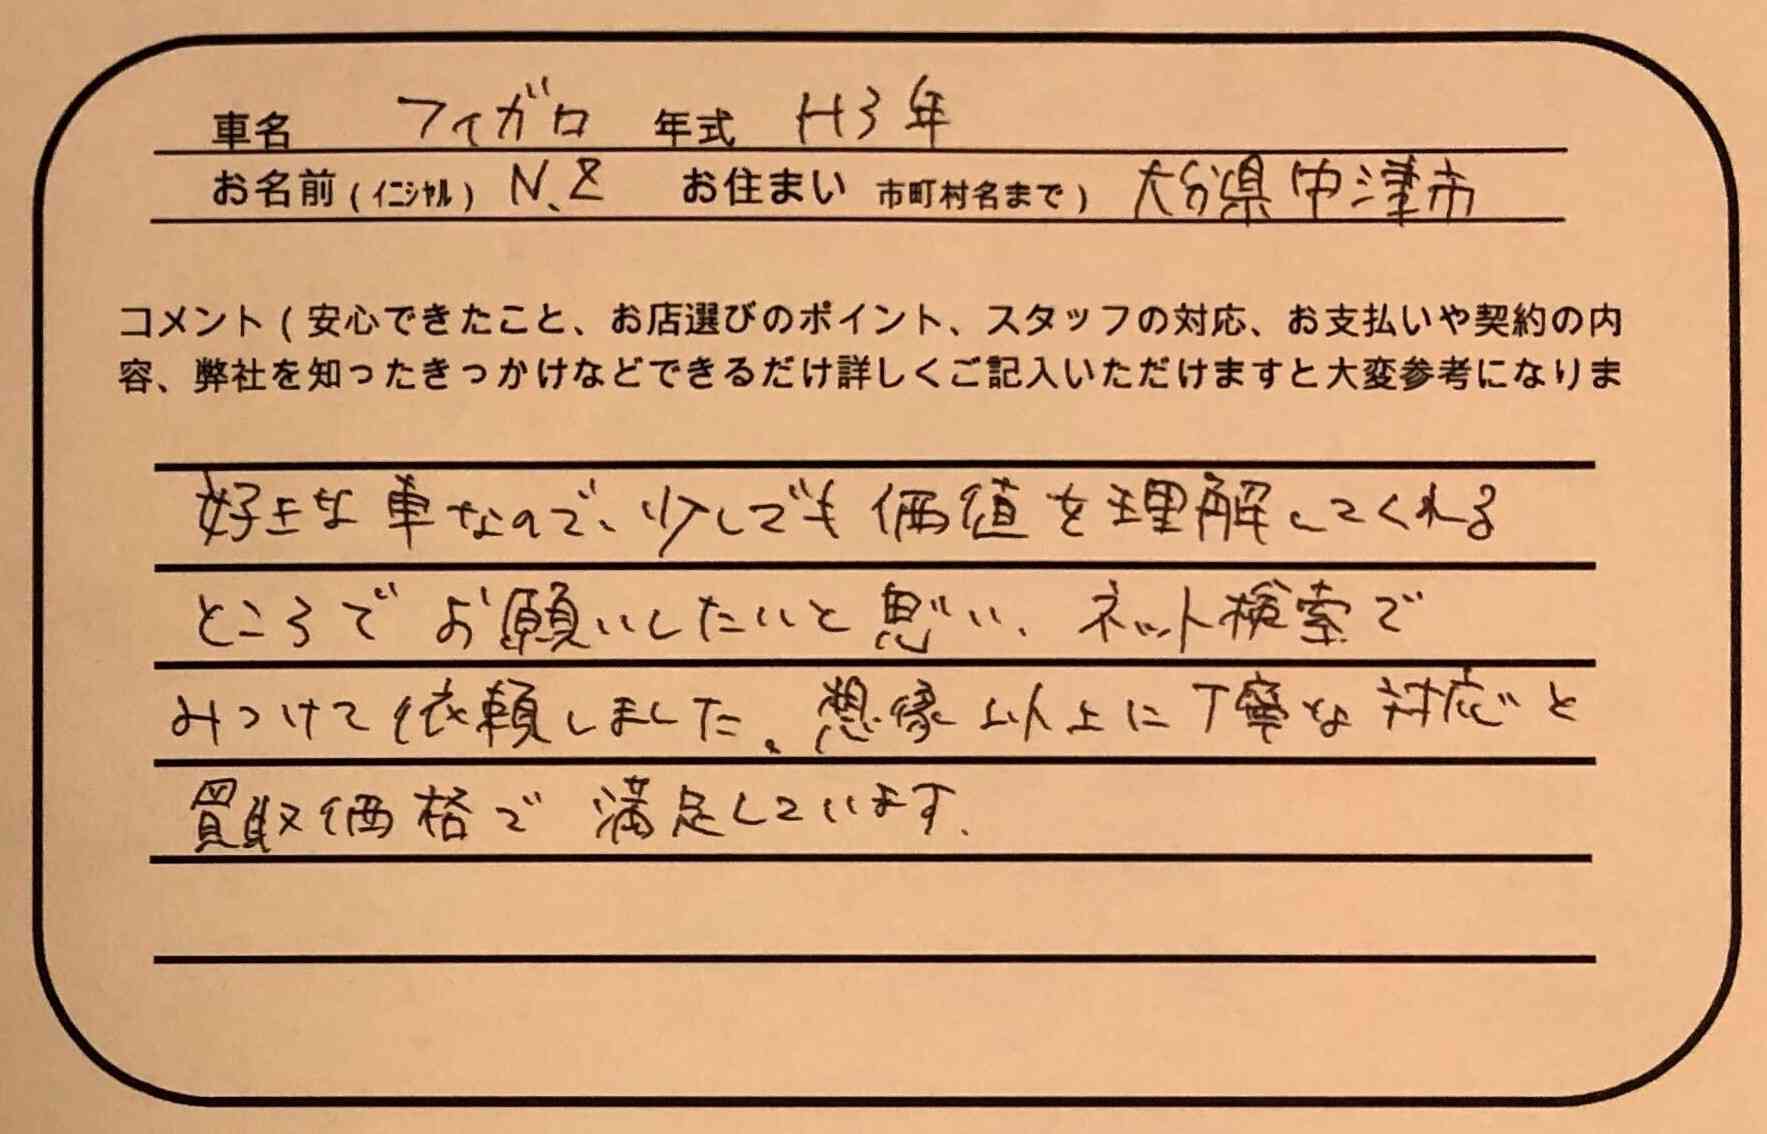 車名 フィガロ 年式 H3年
お名前(ｲﾆｼｬﾙ) N.Z お住まい 市町村名まで) 大分県中津市
コメント(安心できたこと、お店選びのポイント、スタッフの対応、お支払いや契約の内
容、弊社を知ったきっかけなどできるだけ詳しくご記入いただけますと大変参考になりま
好きな車なので、少しでも価値を理解してくれる
ところでお願いしたいと思い、ネット検索で
みつけて依頼しました。想像以上に丁寧な対応と
買取価格で満足しています。